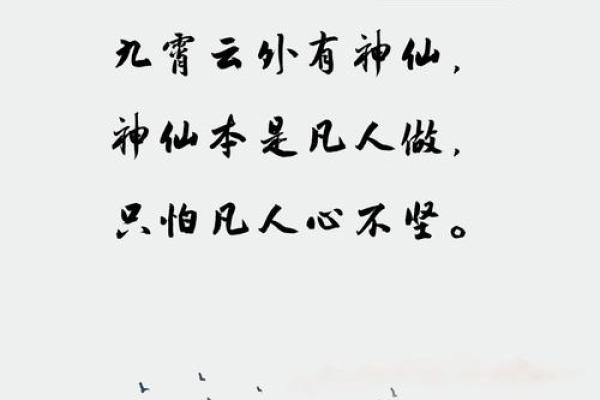 九霄云外有神仙，
神仙本是凡人做，
只怕凡人心不坚。